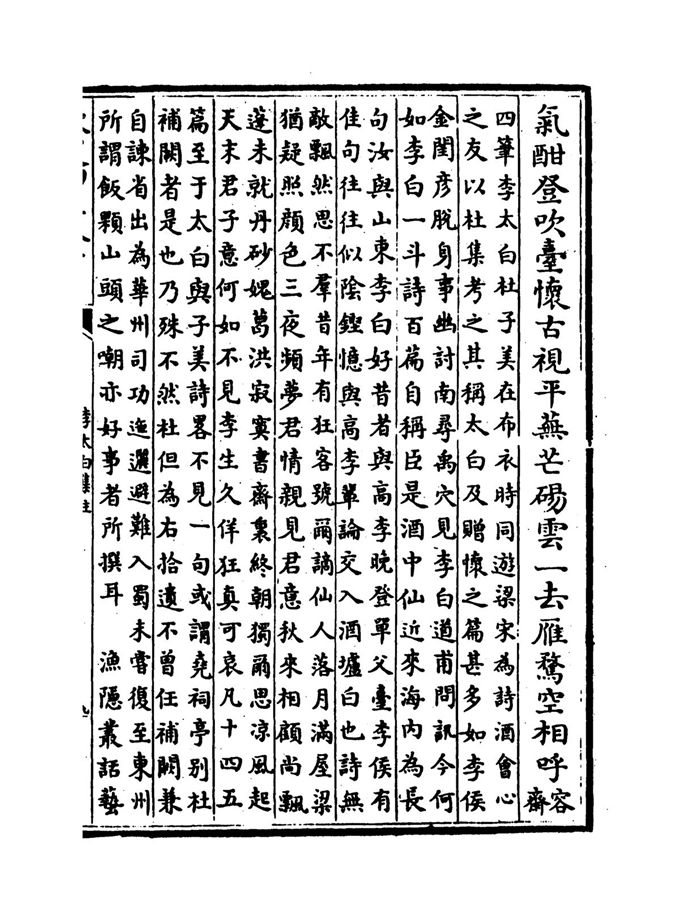 氣酣登吹臺懷古視平蕪芒碭雲一去雁鶩空相呼容齋
四筆李太白杜子美在布衣時同遊梁宋為詩酒會心
之友以杜集考之其稱太白及贈懷之篇甚多如李侯
金閨彥脫身事幽討南尋禹穴見李白道甫問訊今何
如李白一斗詩百篇自稱臣是酒中仙近來海內為長
句汝與山東李白好昔者與高李晚登單父臺李侯有
佳句往往似陰鏗憶與高李輩論交入酒壚白也詩無
敵飄然思不羣昔年有狂客號爾謫仙人落月滿屋梁
猶疑照顏色三夜頻夢君情親見君意秋來相顧尚飄
蓬未就丹砂媿葛洪寂寞書齋裏終朝獨爾思涼風起
天末君子意何如不見李生久佯狂真可哀凡十四五
篇至于太白與子美詩畧不見一句或謂堯祠亭別杜
補闕者是也乃殊不然杜但為右拾遺不曾任補闕兼
自諫省出為華州司功迤邐避難入蜀未嘗復至東州
所謂飯顆山頭之嘲亦好事者所撰耳　漁隱叢話藝
李太白集註